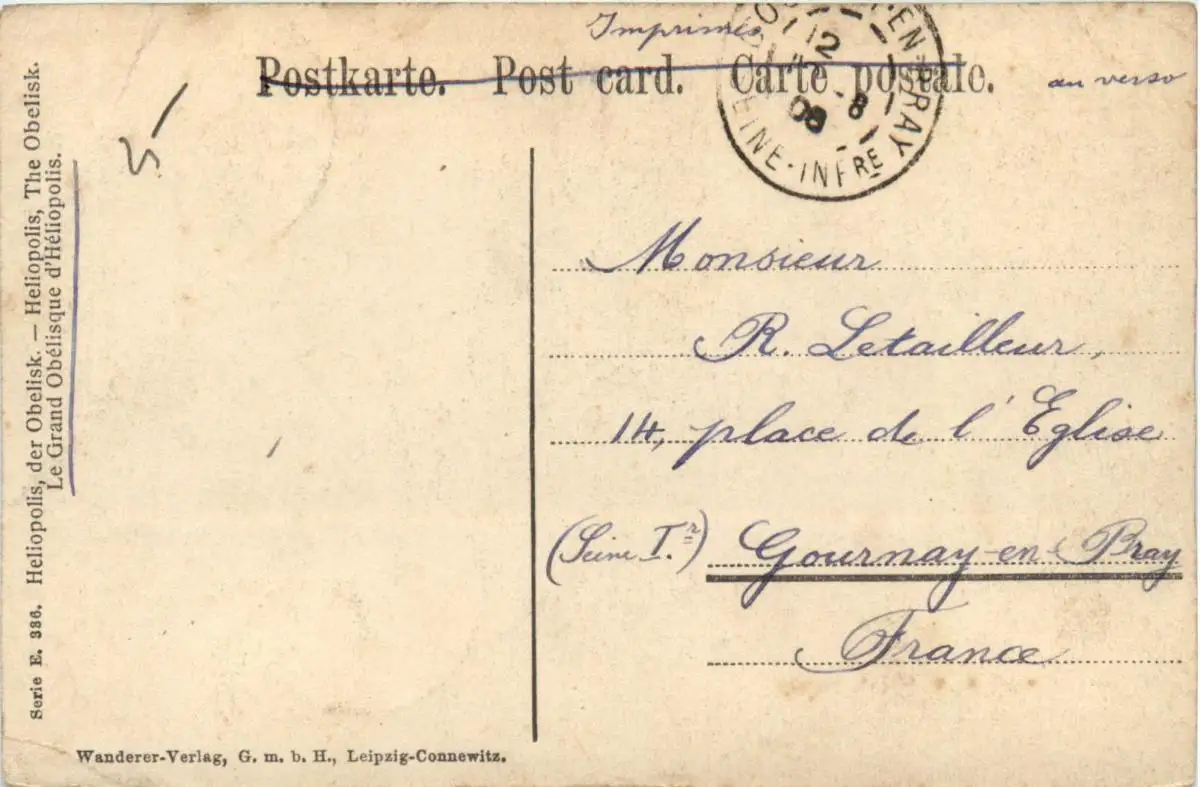 Imprimés
Postkarte. Post card. Carte postale.
au verso
EN-BRAY
SEINE-INFRE
12
-8
08
Serie E. 336. Heliopolis, der Obelisk. — Heliopolis, The Obelisk.
Le Grand Obélisque d'Héliopolis.
Monsieur
R. Letailleur,
14, place de l'Eglise
(Seine Ire) Gournay-en-Bray
France
Wanderer-Verlag, G. m. b. H., Leipzig-Connewitz.